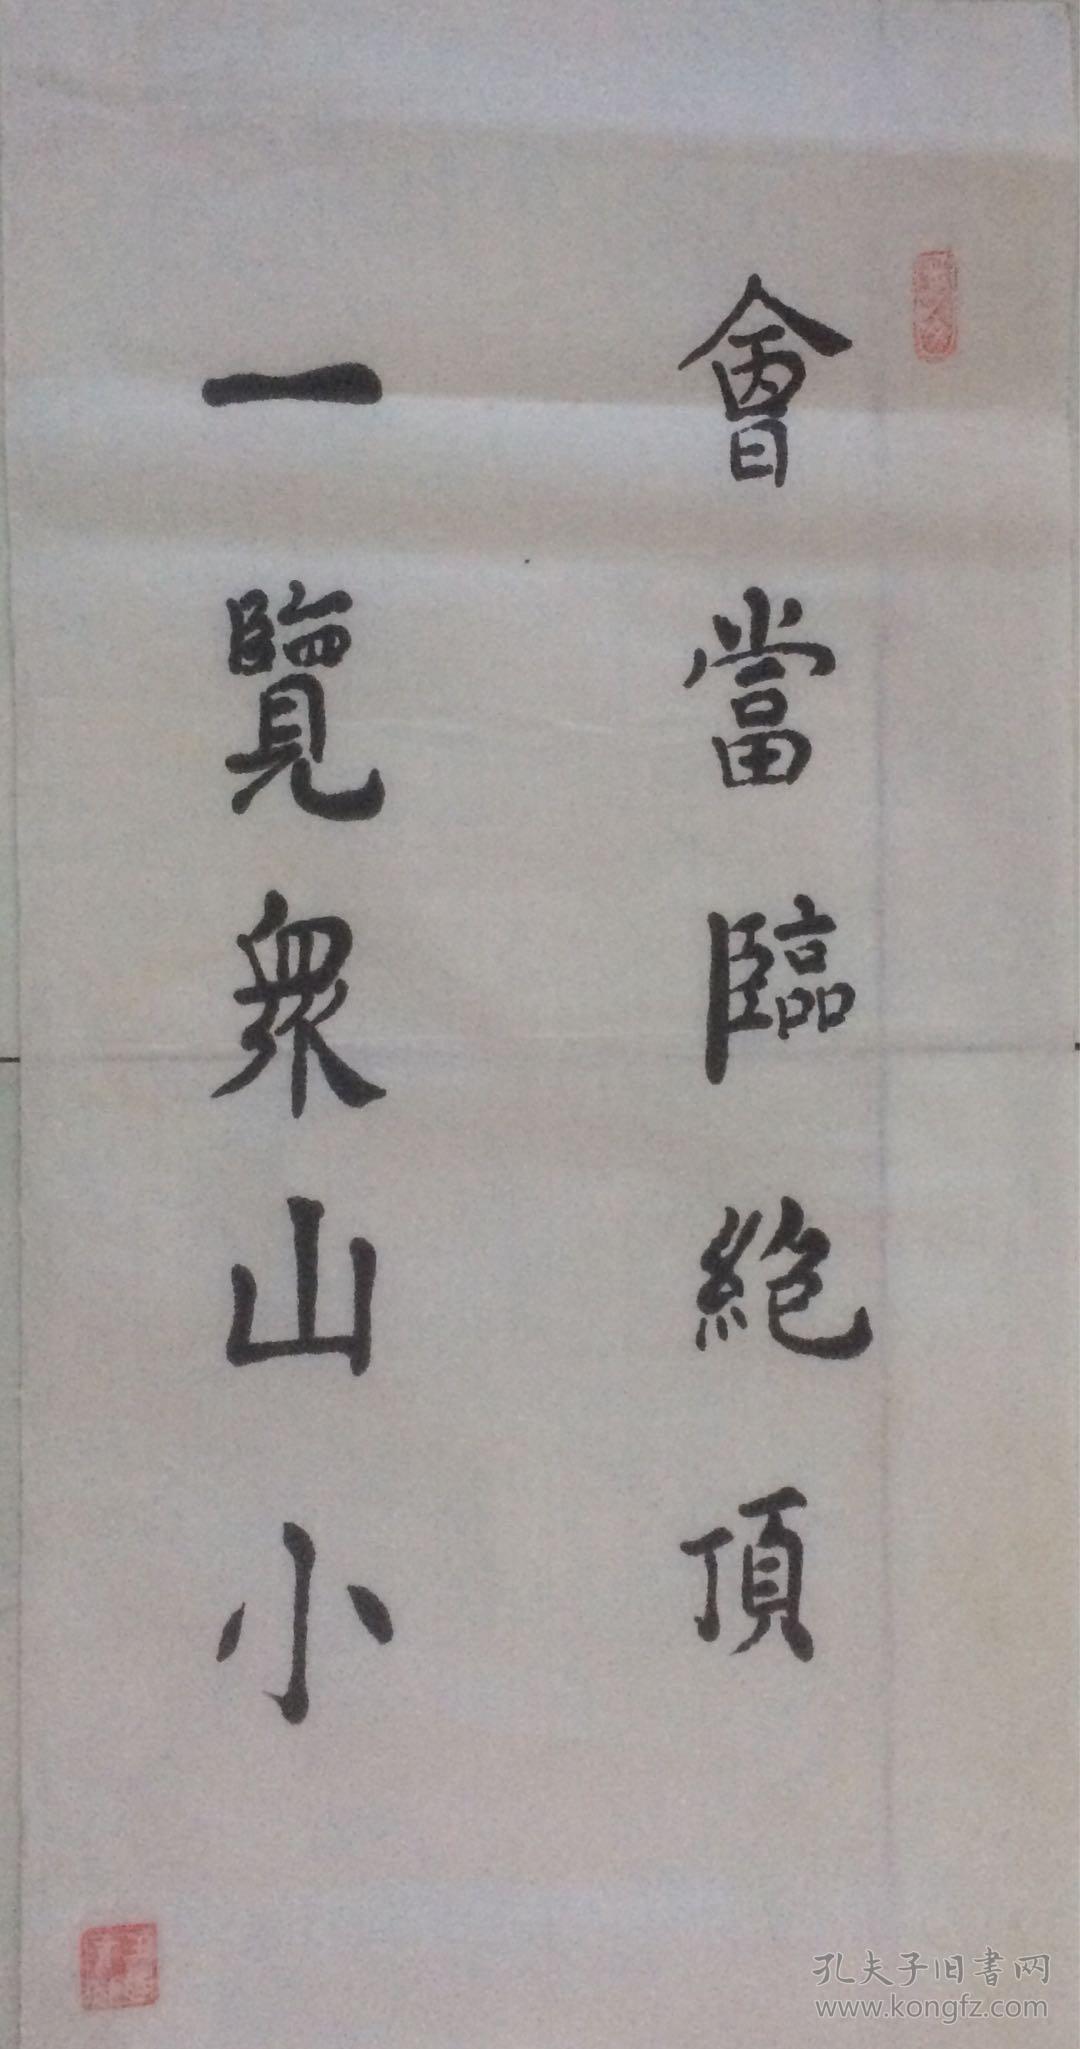 會當臨絕頂
一覽眾山小
孔夫子旧书网
www.kongfz.com